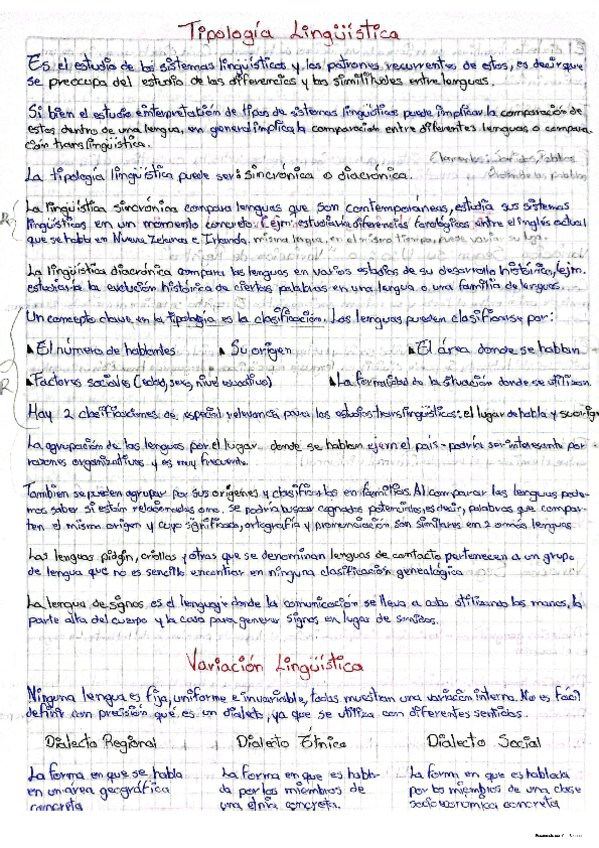 Tipología Lingüística
Es el estudio de los sistemas lingüísticos y los patrones recurrentes de estos, es decir que
se preocupa del estudio de las diferencias y las similitudes entre lenguas.
Si bien el estudio e interpretación de tipos de sistemas lingüísticos puede implicar la comparación de
estos dentro de una lengua, en general implica la comparación entre diferentes lenguas o compara-
ción translingüística.
La tipología lingüística puede ser: sincrónica o diacrónica.
La lingüística sincrónica compara lenguas que son contemporáneas, estudia sus sistemas
lingüísticos en un momento concreto. Ejm: estudiaría diferencias fonológicas entre el inglés actual
que se habla en Nueva Zelanda e Irlanda. misma lengua, en el mismo tiempo, puede variar su
La lingüística diacrónica compara las lenguas en varios estadios de su desarrollo histórico, Ejm.
estudiaría la evolución histórica de ciertas palabras en una lengua o una familia de lenguas.
Un concepto clave en la tipología es la clasificación. Las lenguas pueden clasificarse por:
El número de hablantes Su origen El área donde se hablan
Factores sociales (edad, sexo, nivel educativo) La formalidad de la situación donde se utilizan
Hay 2 clasificaciones de especial relevancia para los estudios translingüísticos: el lugar de habla y su origen
La agrupación de las lenguas por el lugar donde se hablan ejem el país - podría ser interesante por
razones organizativas y es muy frecuente.
También se pueden agrupar por sus orígenes y clasificarlas en familias. Al comparar las lenguas pode-
mos saber si están relacionadas o no. Se podría buscar cognados potenciales, es decir, palabras que compar-
ten el mismo origen y cuyo significado, ortografía y pronunciación son similares en 2 o más lenguas
Las lenguas pidgin, criollas y otras que se denominan lenguas de contacto pertenecen a un grupo
de lengua que no es sencillo encontrar en ninguna clasificación genealógica
La lengua de signos es el lenguaje donde la comunicación se lleva a cabo utilizando las manos, la
parte alta del cuerpo y la cara para generar signos en lugar de sonidos.
Variación Lingüística
Ninguna lengua es fija, uniforme e invariable, todas muestran una variación interna. No es fácil
definir con precisión qué es un dialecto, ya que se utiliza con diferentes sentidos.
Dialecto Regional Dialecto Étnico Dialecto Social
La forma en que se habla La forma en que es habla- La forma en que es hablada
en un área geográfica da por los miembros de por los miembros de una clase
concreta una etnia concreta. socioeconómica concreta